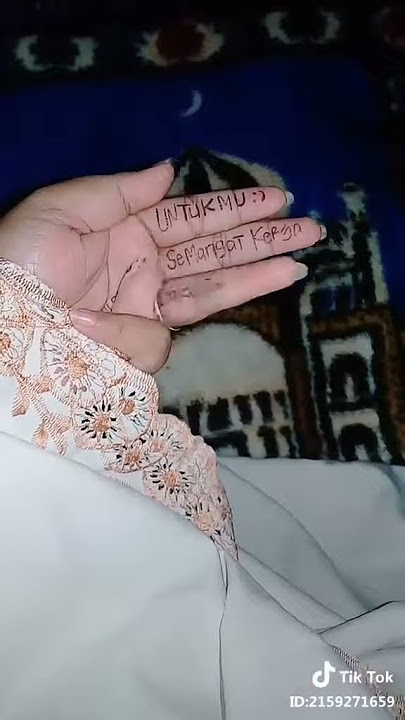 UNTUKMU :)
SEMANGAT KERJA
Tik Tok
ID:2159271659